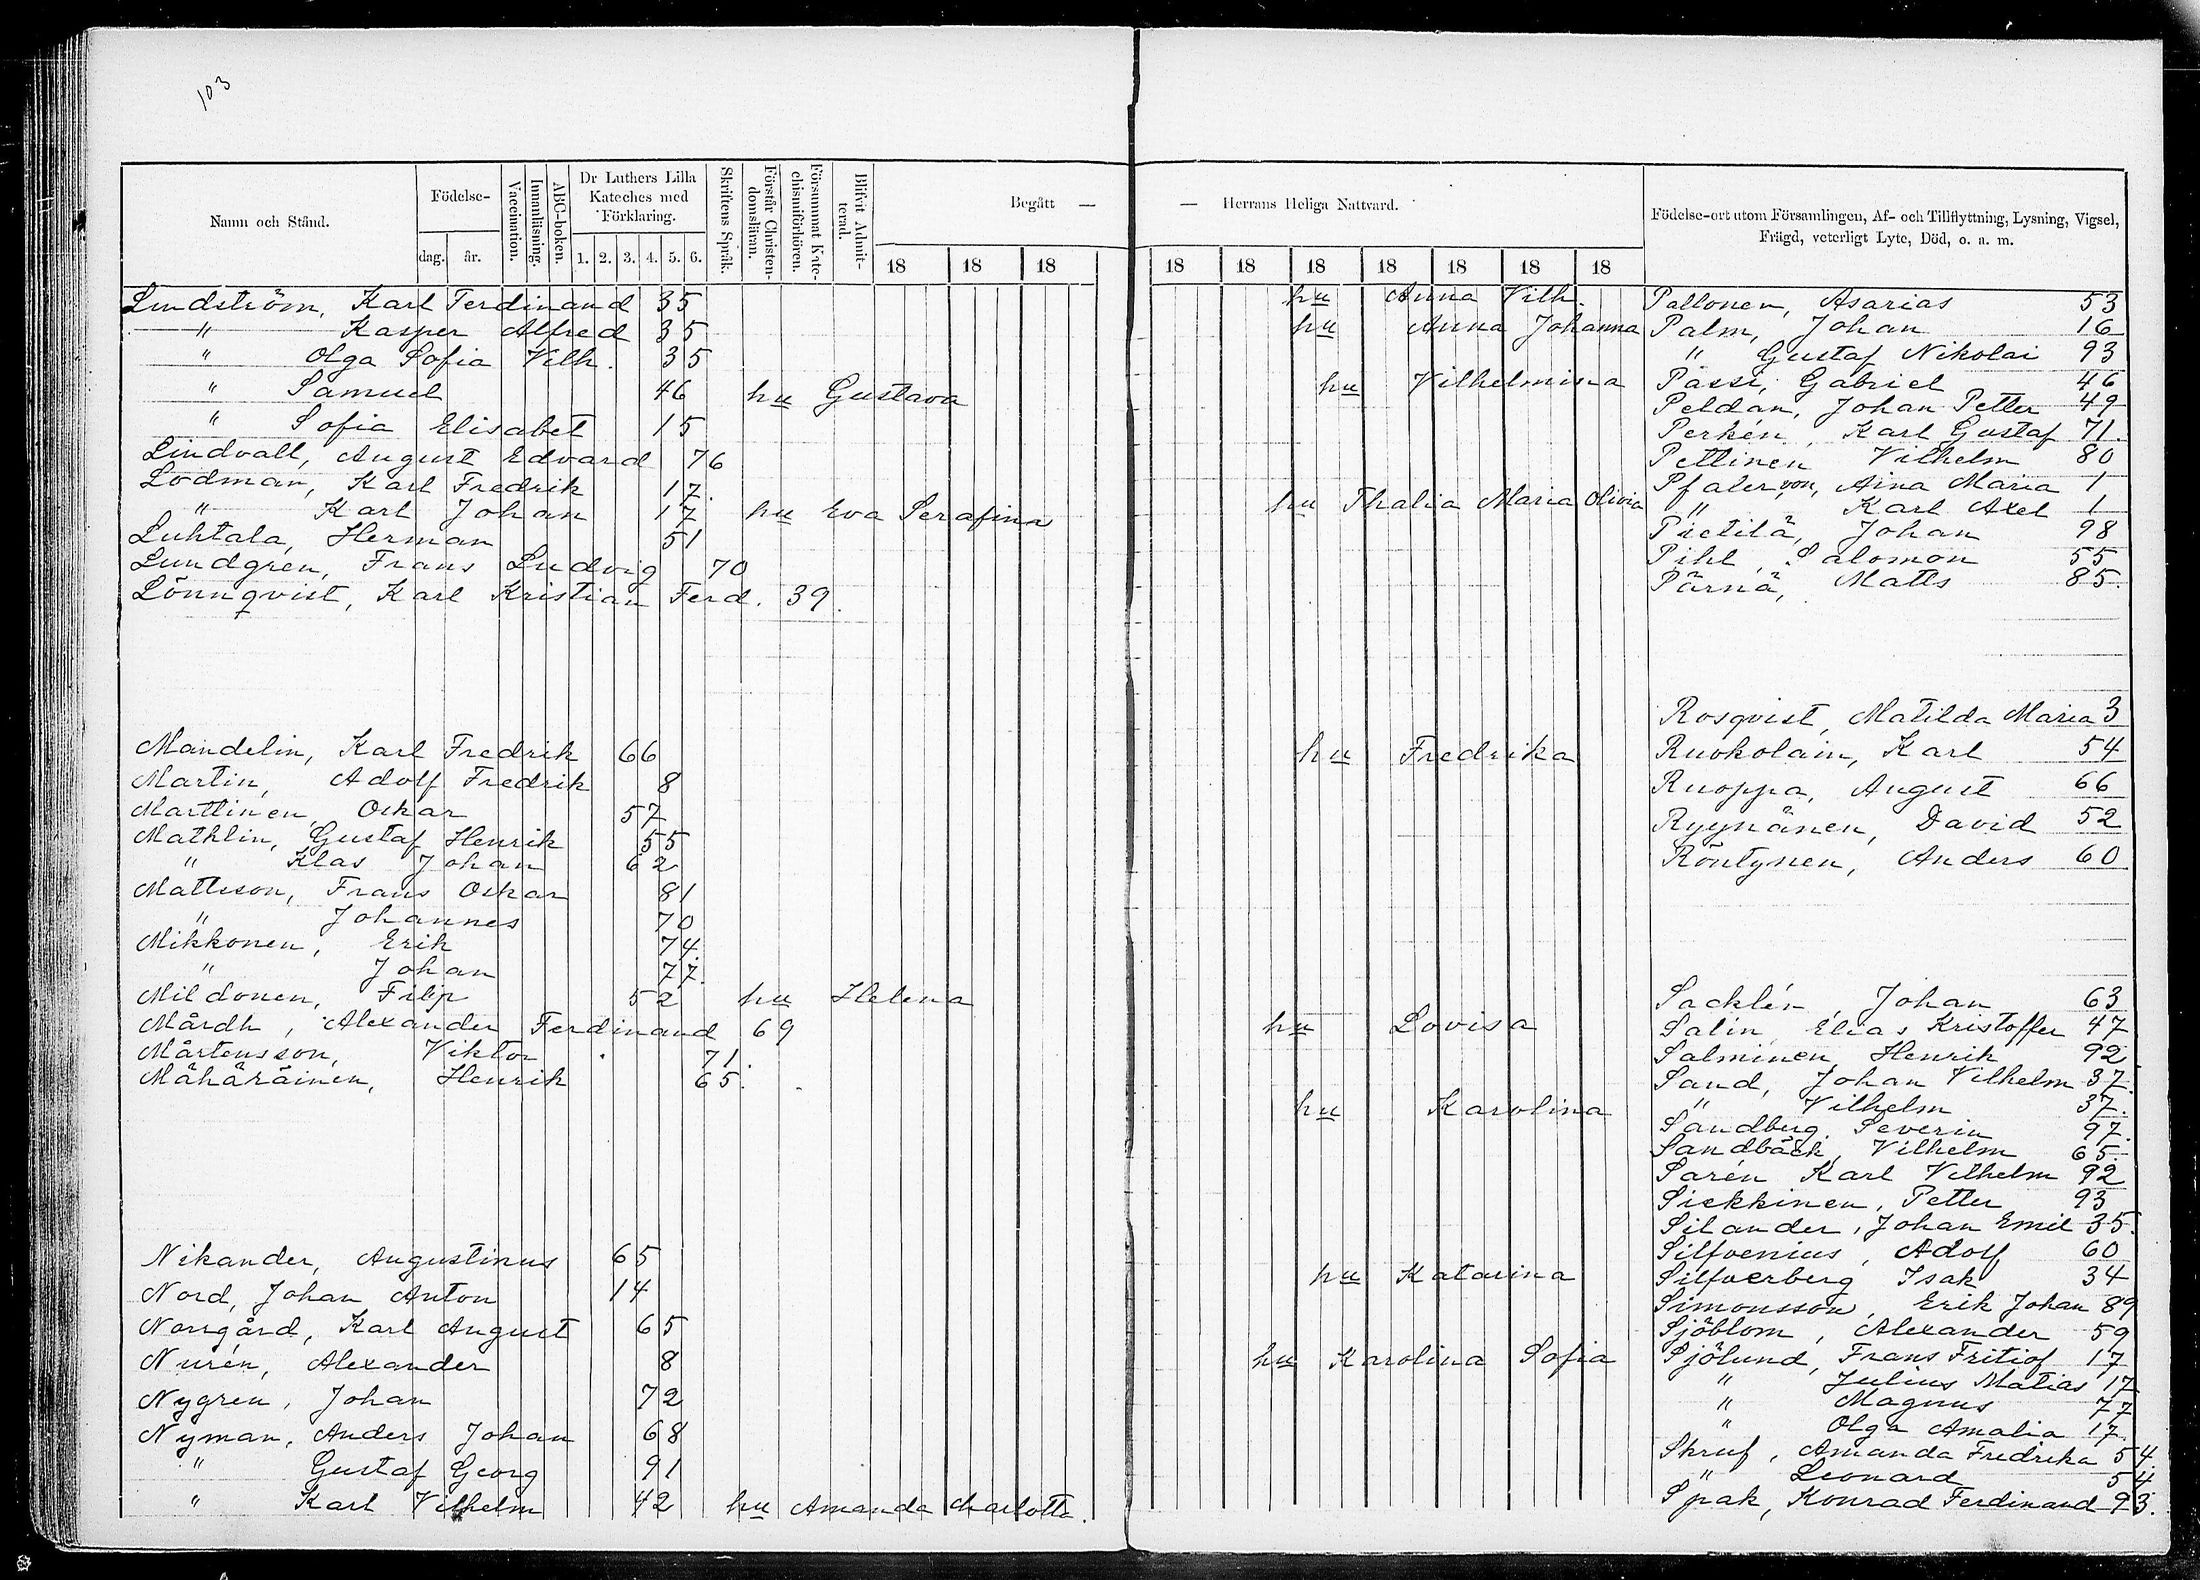 103
Namn och Stånd.
Födelse-
dag. år.
Vaccination.
Innanläsning.
ABC-boken.
Dr Luthers Lilla Kateches med Förklaring.
1. 2. 3. 4. 5. 6.
Skriftens Språk.
Förstår Christendomsläran.
Försummat Katechismiförhören.
Blifvit Admitterad.
Begått —
— Herrans Heliga Nattvard.
18 18 18 18 18 18 18 18 18 18
Födelse-ort utom Församlingen, Af- och Tillflyttning, Lysning, Vigsel,
Frägd, veterligt Lyte, Död, o. a. m.
Lindström, Karl Ferdinand 35
" Kasper Alfred 35
" Olga Sofia Vilh. 35
" Samuel 46 hu Gustava
" Sofia Elisabet 15
Lindvall, August Edvard 76
Lodman, Karl Fredrik 17.
" Karl Johan 17 hu Eva Serafina
Luhtala, Herman 51
Lundgren, Frans Ludvig 70
Lönnqvist, Karl Kristian Ferd. 39.
Mandelin, Karl Fredrik 66
Martin, Adolf Fredrik 8
Marttinen, Oskar 57
Mathlin, Gustaf Henrik 55
" Klas Johan 62
Mattsson, Frans Oskar 81
" Johannes 70
Mikkonen, Erik 74.
" Johan 77.
Mildonen, Filip 52 hu Helena
Mårdh, Alexander Ferdinand 69
Mårtensson, Viktor 71.
Mähäräinen, Henrik 65.
Nikander, Augustinus 65
Nord, Johan Anton 14
Norrgård, Karl August 65
Nurén, Alexander 8
Nygren, Johan 72
Nyman, Anders Johan 68
" Gustaf Georg 91
" Karl Vilhelm 42 hu Amanda Charlotta.
hu Anna Vilh. Pallonen, Asarias 53
hu Anna Johanna Palm, Johan 16
" Gustaf Nikolai 93
hu Vilhelmina Passi, Gabriel 46
Peldán, Johan Petter 49
Perkén, Karl Gustaf 71.
Pettinen Vilhelm 80
Pfaler von, Aina Maria 1
hu Thalia Maria Olivia " Karl Axel 1
Pietilä, Johan 98
Pihl, Salomon 55
Pärnä, Matts 85.
Rosqvist, Matilda Maria 3
hu Fredrika Ruokolain, Karl 54
Ruoppa, August 66
Ryynänen, David 52
Röntynen, Anders 60
Sacklén, Johan 63
hu Lovisa Salin, Elias Kristoffer 47
Salminen, Henrik 92
Sand, Johan Vilhelm 37.
hu Karolina " Vilhelm 37.
Sandberg, Severin 97.
Sandbäck, Vilhelm 65.
Sarén Karl Vilhelm 92
Siekkinen, Petter 93
Silander, Johan Emil 35.
Silfvenius, Adolf 60
hu Katarina Silfverberg Isak 34
Simonsson, Erik Johan 89
Sjöblom, Alexander 59
hu Karolina Sofia Sjölund, Frans Fritiof 17
" Julius Matias 17
" Magnus 77
" Olga Amalia 17.
Skruf, Amanda Fredrika 54.
" Leonard 54
Spak, Konrad Ferdinand 93.